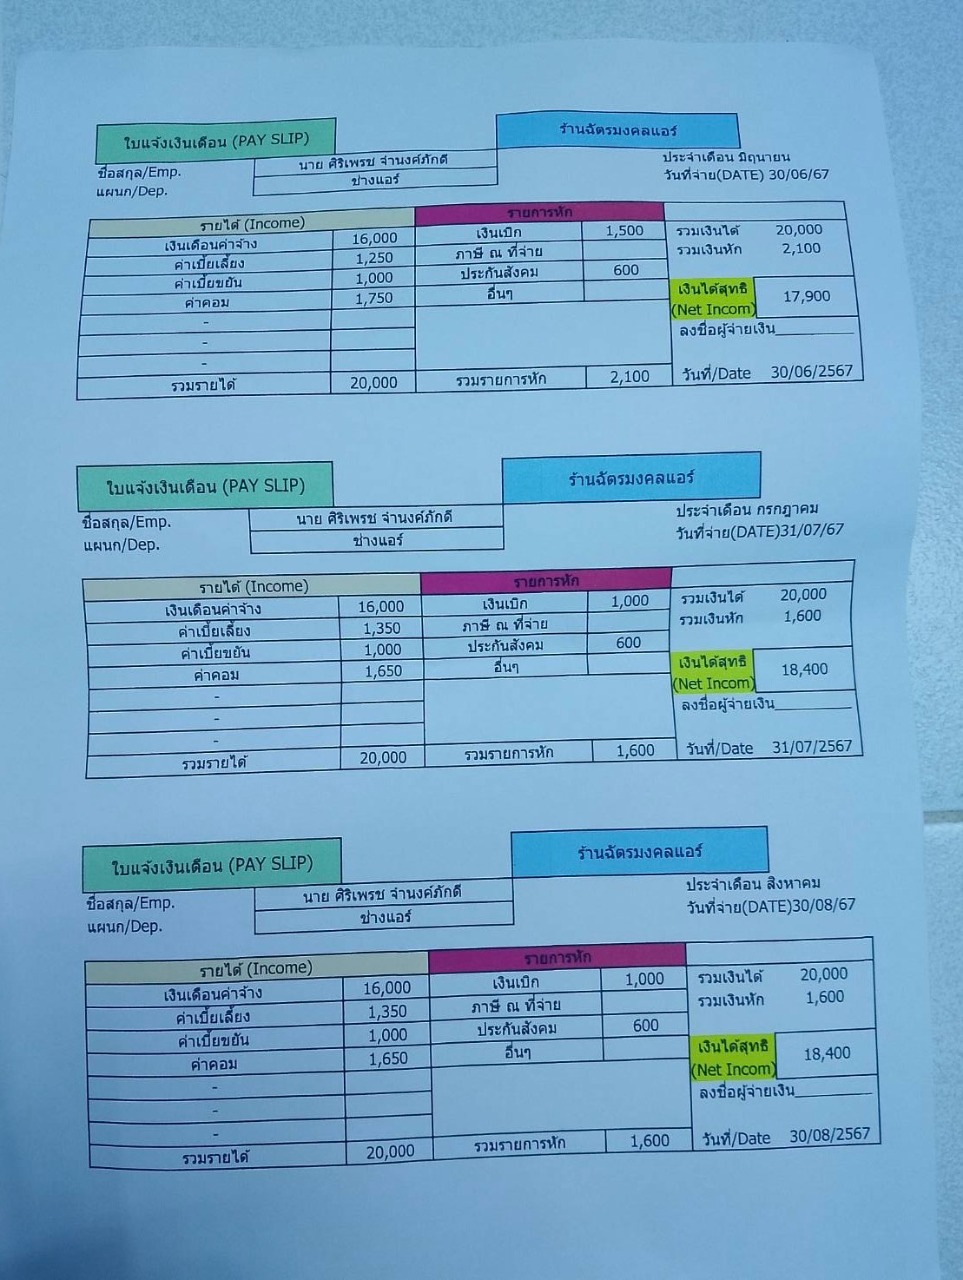 ใบแจ้งเงินเดือน (PAY SLIP)
ร้านฉัตรมงคลแอร์
ชื่อสกุล/Emp. นาย ศิริเพรช จำนงค์ภักดี ประจำเดือน มิถุนายน
แผนก/Dep. ช่างแอร์ วันที่จ่าย(DATE) 30/06/67
รายได้ (Income) รายการหัก
เงินเดือนค่าจ้าง 16,000 เงินเบิก 1,500 รวมเงินได้ 20,000
ค่าเบี้ยเลี้ยง 1,250 ภาษี ณ ที่จ่าย รวมเงินหัก 2,100
ค่าเบี้ยขยัน 1,000 ประกันสังคม 600
ค่าคอม 1,750 อื่นๆ เงินได้สุทธิ 17,900
- (Net Incom)
- ลงชื่อผู้จ่ายเงิน
-
รวมรายได้ 20,000 รวมรายการหัก 2,100 วันที่/Date 30/06/2567
ใบแจ้งเงินเดือน (PAY SLIP)
ร้านฉัตรมงคลแอร์
ชื่อสกุล/Emp. นาย ศิริเพรช จำนงค์ภักดี ประจำเดือน กรกฎาคม
แผนก/Dep. ช่างแอร์ วันที่จ่าย(DATE)31/07/67
รายได้ (Income) รายการหัก
เงินเดือนค่าจ้าง 16,000 เงินเบิก 1,000 รวมเงินได้ 20,000
ค่าเบี้ยเลี้ยง 1,350 ภาษี ณ ที่จ่าย รวมเงินหัก 1,600
ค่าเบี้ยขยัน 1,000 ประกันสังคม 600
ค่าคอม 1,650 อื่นๆ เงินได้สุทธิ 18,400
- (Net Incom)
- ลงชื่อผู้จ่ายเงิน
-
รวมรายได้ 20,000 รวมรายการหัก 1,600 วันที่/Date 31/07/2567
ใบแจ้งเงินเดือน (PAY SLIP)
ร้านฉัตรมงคลแอร์
ชื่อสกุล/Emp. นาย ศิริเพรช จำนงค์ภักดี ประจำเดือน สิงหาคม
แผนก/Dep. ช่างแอร์ วันที่จ่าย(DATE)30/08/67
รายได้ (Income) รายการหัก
เงินเดือนค่าจ้าง 16,000 เงินเบิก 1,000 รวมเงินได้ 20,000
ค่าเบี้ยเลี้ยง 1,350 ภาษี ณ ที่จ่าย รวมเงินหัก 1,600
ค่าเบี้ยขยัน 1,000 ประกันสังคม 600
ค่าคอม 1,650 อื่นๆ เงินได้สุทธิ 18,400
- (Net Incom)
- ลงชื่อผู้จ่ายเงิน
-
รวมรายได้ 20,000 รวมรายการหัก 1,600 วันที่/Date 30/08/2567